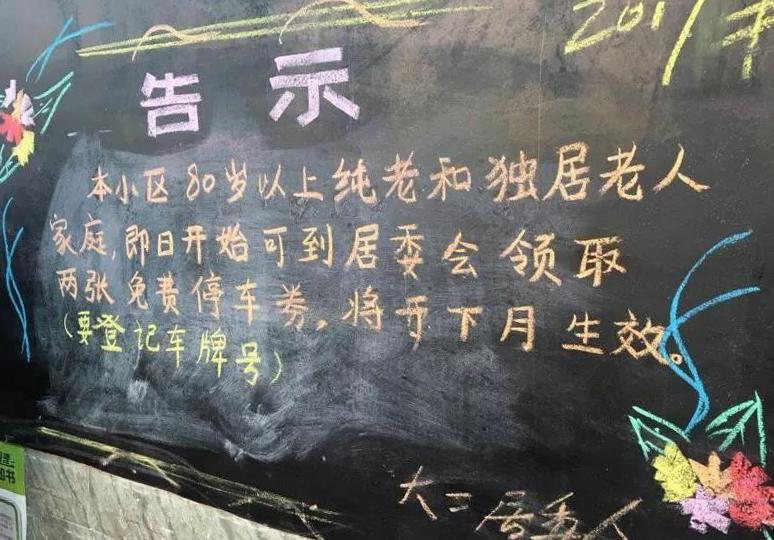 2017年
告示
本小区80岁以上纯老和独居老人
家庭,即日开始可到居委会领取
两张免费停车券。将于下月生效。
(要登记车牌号)
大二居委